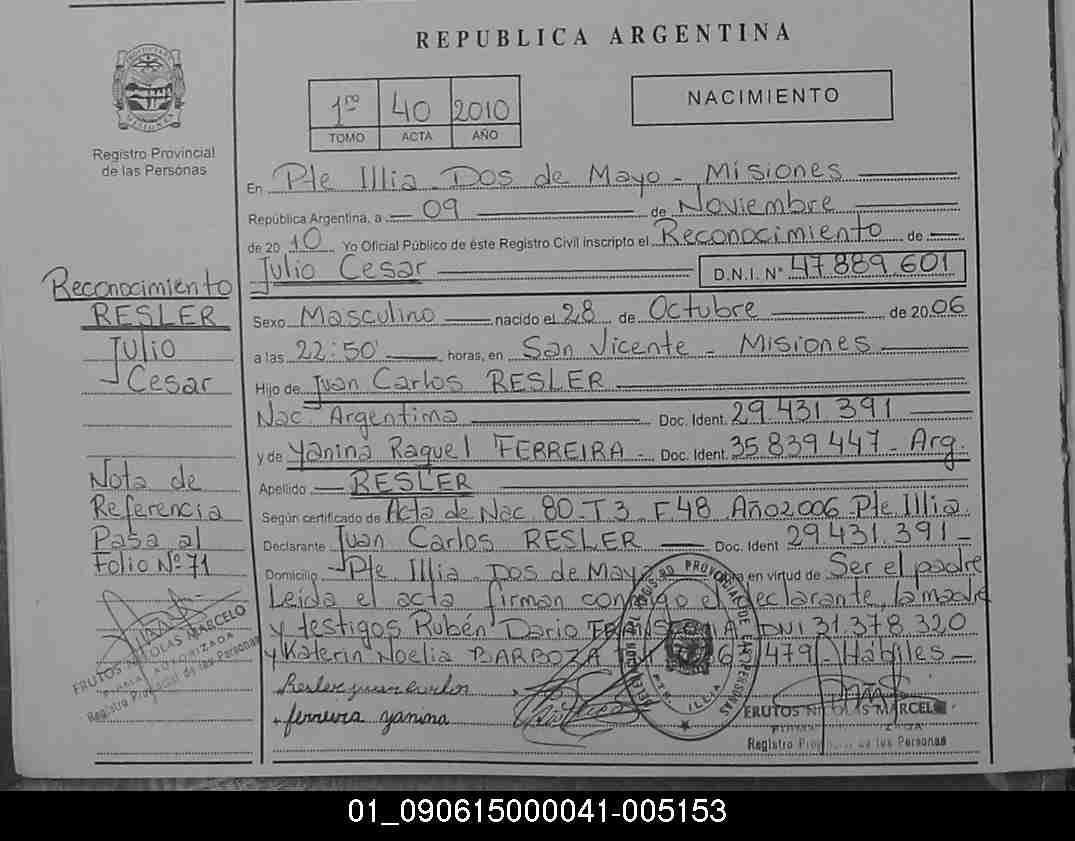 REPUBLICA ARGENTINA
1ro 40 2010
TOMO ACTA AÑO
NACIMIENTO
Registro Provincial
de las Personas
En Pte Illia - Dos de Mayo - Misiones
República Argentina, a 09 de Noviembre
de 2010 Yo Oficial Público de éste Registro Civil inscripto el Reconocimiento de
Julio Cesar D.N.I. N° 47.889.601
Sexo Masculino nacido el 28 de Octubre de 2006
a las 22:50 horas, en San Vicente - Misiones
Hijo de Juan Carlos RESLER
Nac. Argentina Doc. Ident. 29.431.391
y de Yanina Raquel FERREIRA - Doc. Ident. 35.839.447 - Arg.
Apellido RESLER
Según certificado de Acta de Nac. 80 - T3 - F48 Año 2006 - Pte Illia.
Declarante Juan Carlos RESLER Doc. Ident 29.431.391 -
Domicilio Pte. Illia - Dos de Mayo en virtud de Ser el padre
Leida el acta firman conmigo el declarante, la madre
y testigos Rubén Dario DNI 31.378.320
y Katerin Noelia BARBOZA 479 - Hábiles -
Resler juan carlos
ferreira yanina
FRUTOS NICOLAS MARCELO
Registro de las Personas
Reconocimiento
RESLER
Julio
Cesar
Nota de
Referencia
Pasa al
Folio Nº 71
FRUTOS NICOLAS MARCELO
Registro Provincial de las Personas
01_090615000041-005153